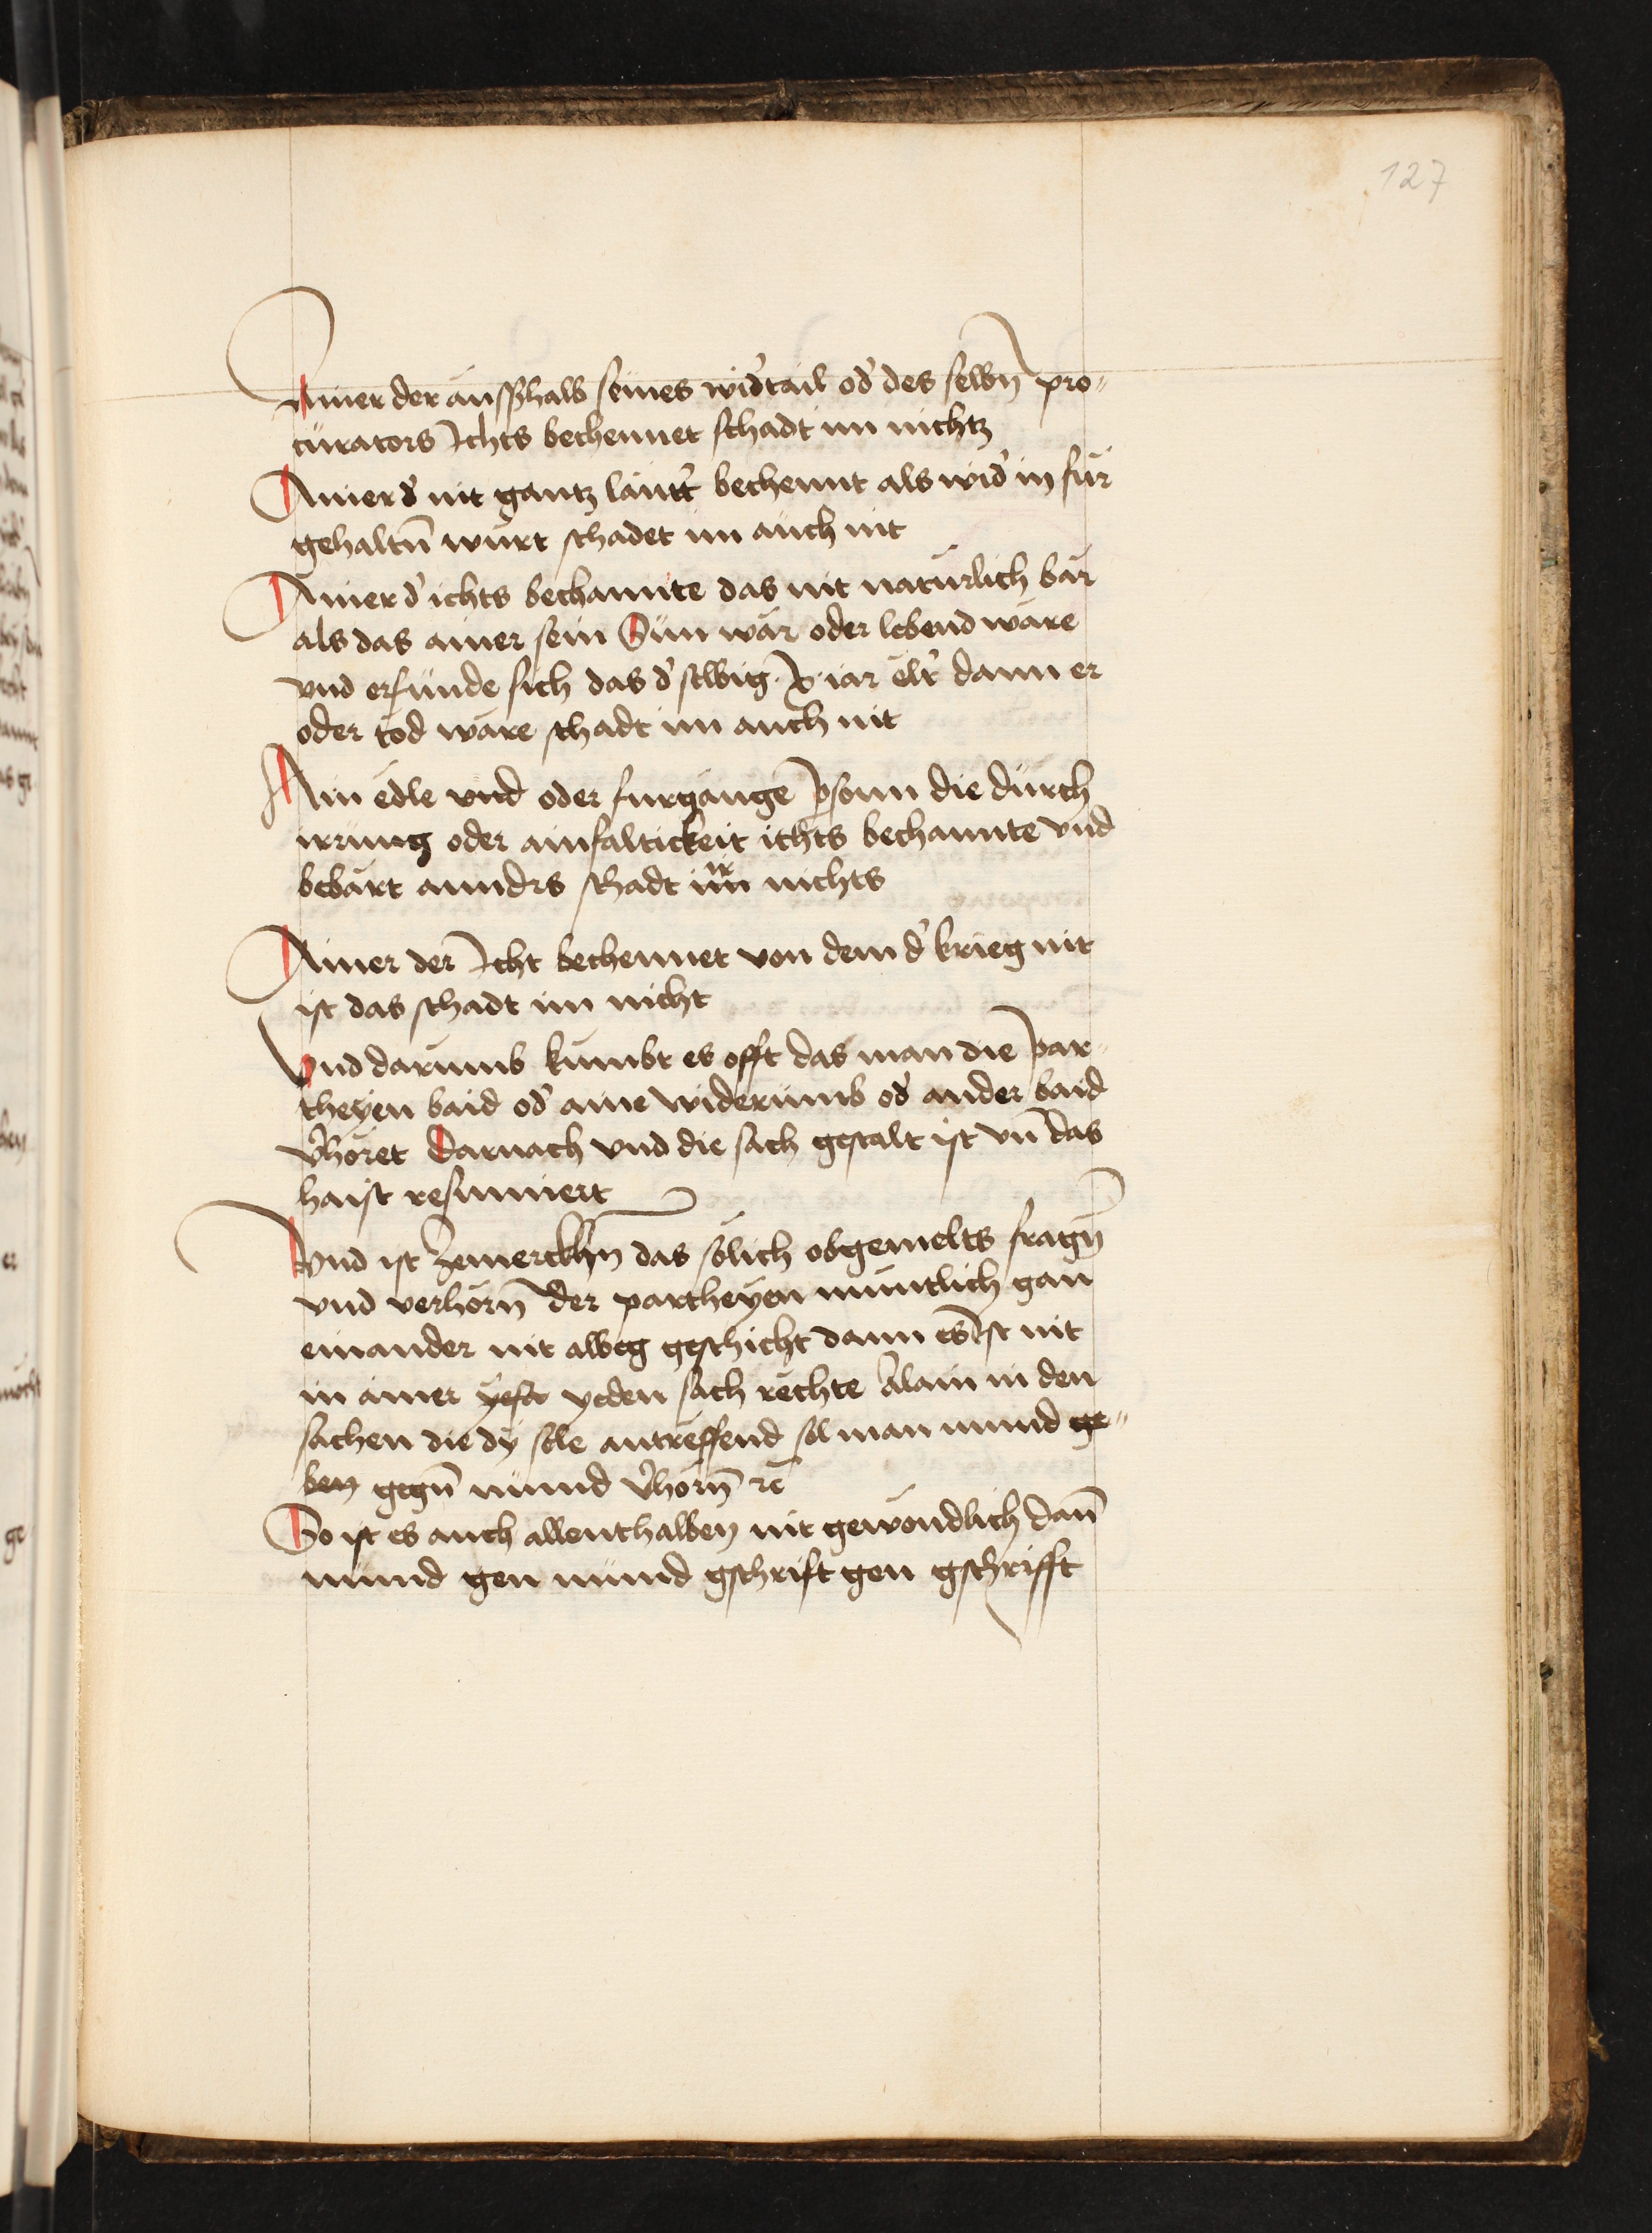 127
Ainer der ausßhalb seines widtail od des selbn pro-
curators Ichts bechennet schadt im nichtz
Ainer d nit gantz lautt bechennt als wid in fur
gehaltn wurt schadet im auch nit
Ainer d ichts bechannte das nit naturlich bar
als das ainer sein Sun war oder lebend ware
vnd erfunde sich das d selbig x iar elt dann er
oder tod ware schadt im auch nit
Ain edle vnd oder furgange psonn die durch
irrung oder ainfaltickeit ichts bechannte vnd
bebart annders schadt im nichts
Ainer der Icht bechennet von dem d krieg nit
ist das schadt im nicht
Vnd darumb kumbt es offt das man die par-
theyen baid od aine widerumb od ander baid
vhoret darnach vnd die sach gestalt ist vn das
haist resumiert
Vnd ist zemerckhn das solich obgemelts fragn
vnd verhorn der partheyen muntlich gan
einander nit alweg geschicht dann es ist nit
in ainer yeden sach rechte Alain in den
sachen die dy sole antreffend sol man mund ge-
ben gegn mund vhorn rc
So ist es auch allenthalben nit gewondlich dan
mund gen mund gschrift gen gschrifft